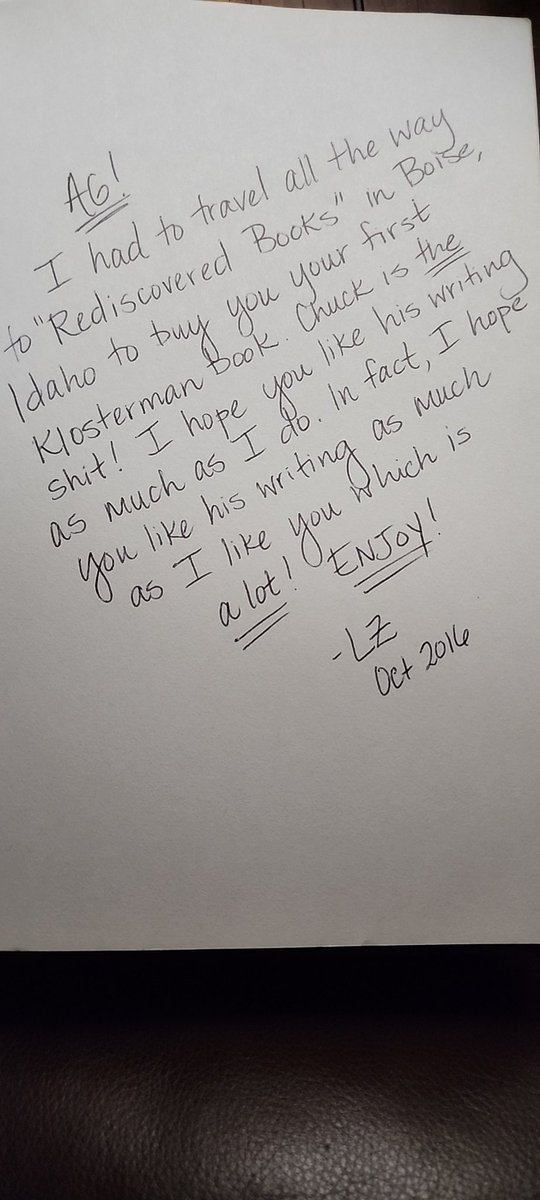 AG!
I had to travel all the way
to "Rediscovered Books" in Boise,
Idaho to buy you your first
Klosterman book. Chuck is the
shit! I hope you like his writing
as much as I do. In fact, I hope
you like his writing as much
as I like you which is
a lot! ENJOY!
-LZ
Oct 2016